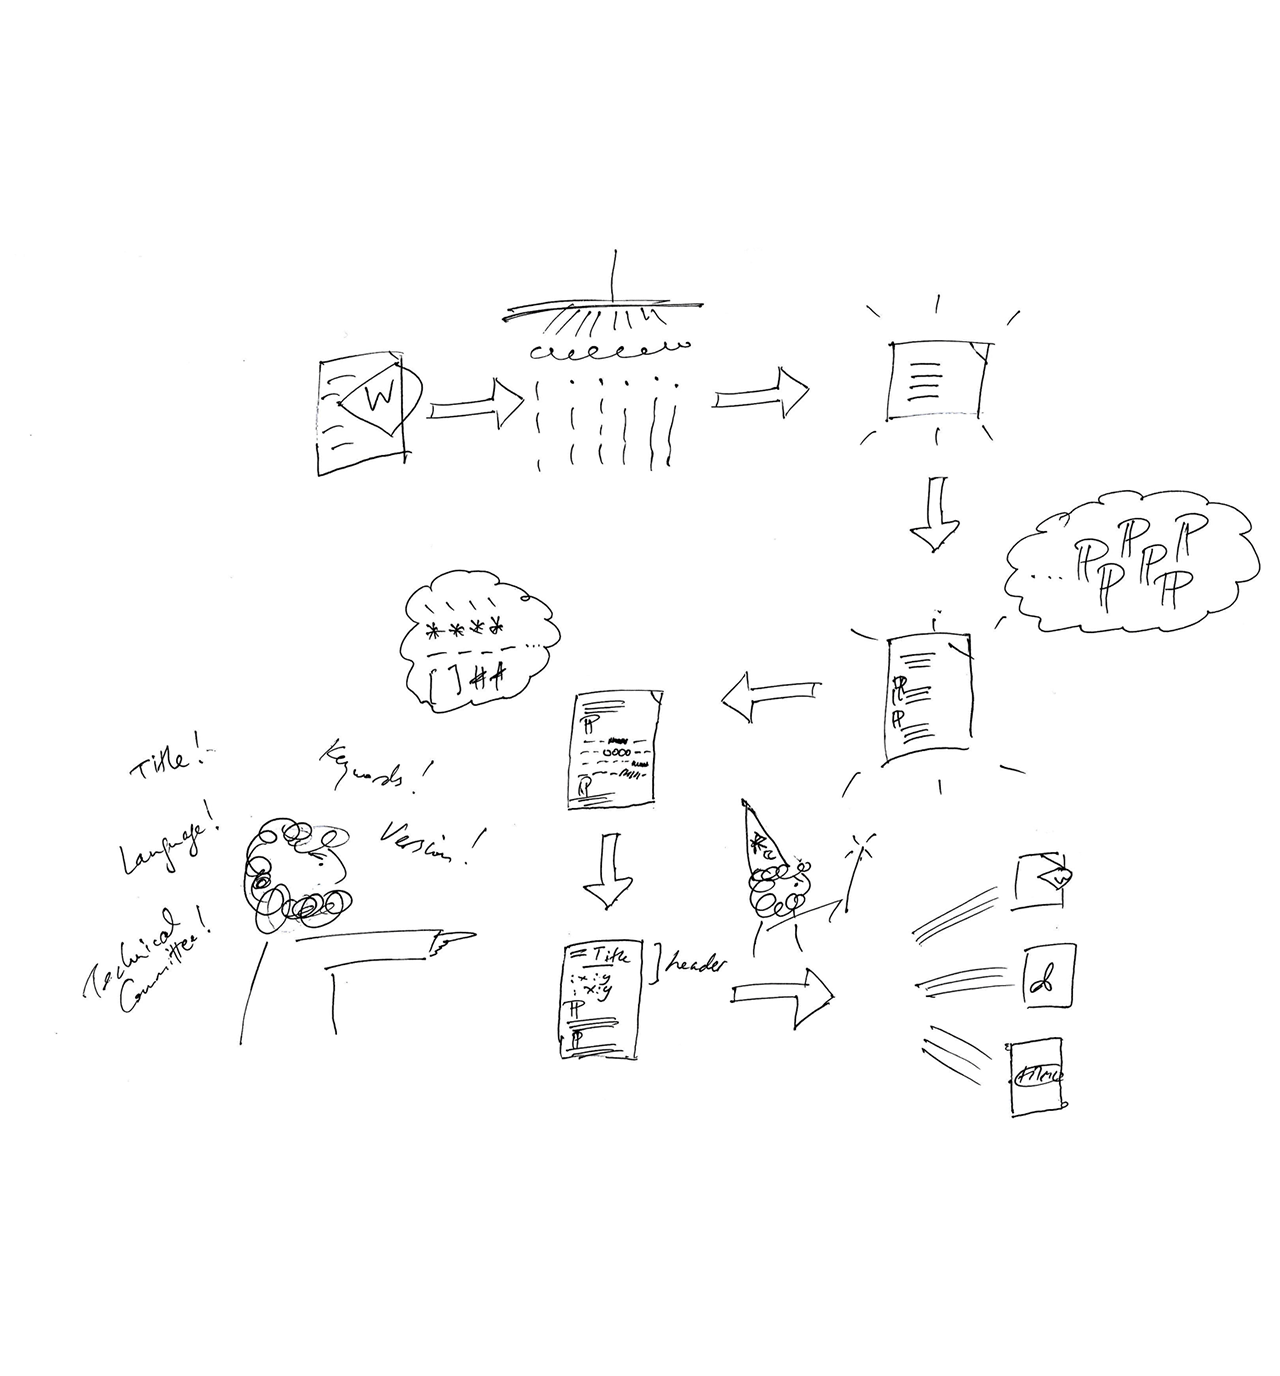 W
P P P
... P P P
\ \ \ \
* * * *
- - - - - - ...
[ ] # #
P
P
P
P
Title!
Keywords!
Language!
Version!
Technical
Committee!
= Title
:x:y
:x:y
P
P
header
W
HTML